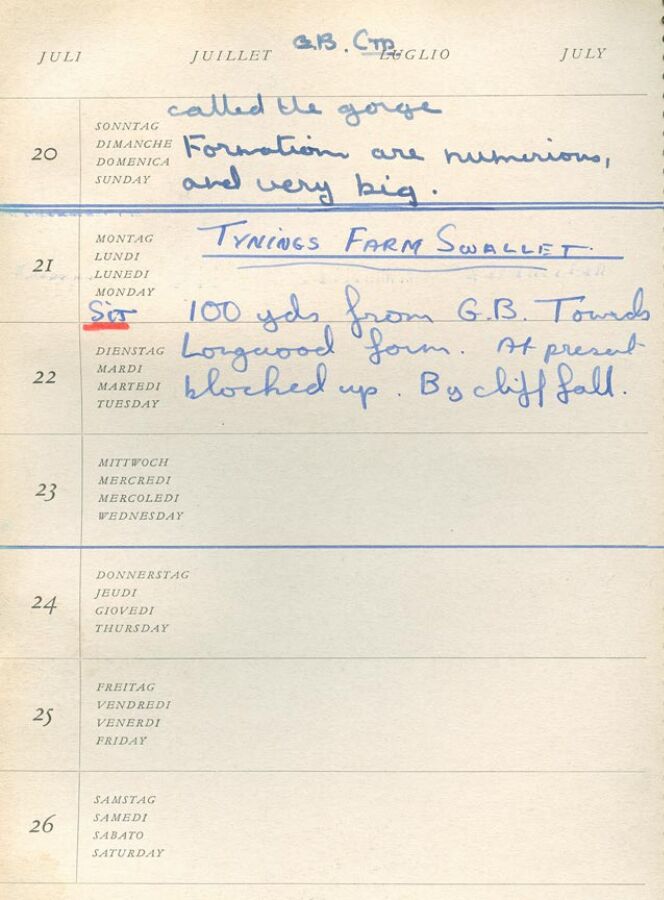 G.B. Ctd.
JULI JUILLET LUGLIO JULY
called the gorge
20 SONNTAG
DIMANCHE
DOMENICA
SUNDAY
Formations are numerious,
and very big.
21 MONTAG
LUNDI
LUNEDI
MONDAY
TYNINGS FARM SWALLET.
Sit 100 yds from G.B. Towards
22 DIENSTAG
MARDI
MARTEDI
TUESDAY
Longwood farm. At present
blocked up. By cliff fall.
23 MITTWOCH
MERCREDI
MERCOLEDI
WEDNESDAY
24 DONNERSTAG
JEUDI
GIOVEDI
THURSDAY
25 FREITAG
VENDREDI
VENERDI
FRIDAY
26 SAMSTAG
SAMEDI
SABATO
SATURDAY